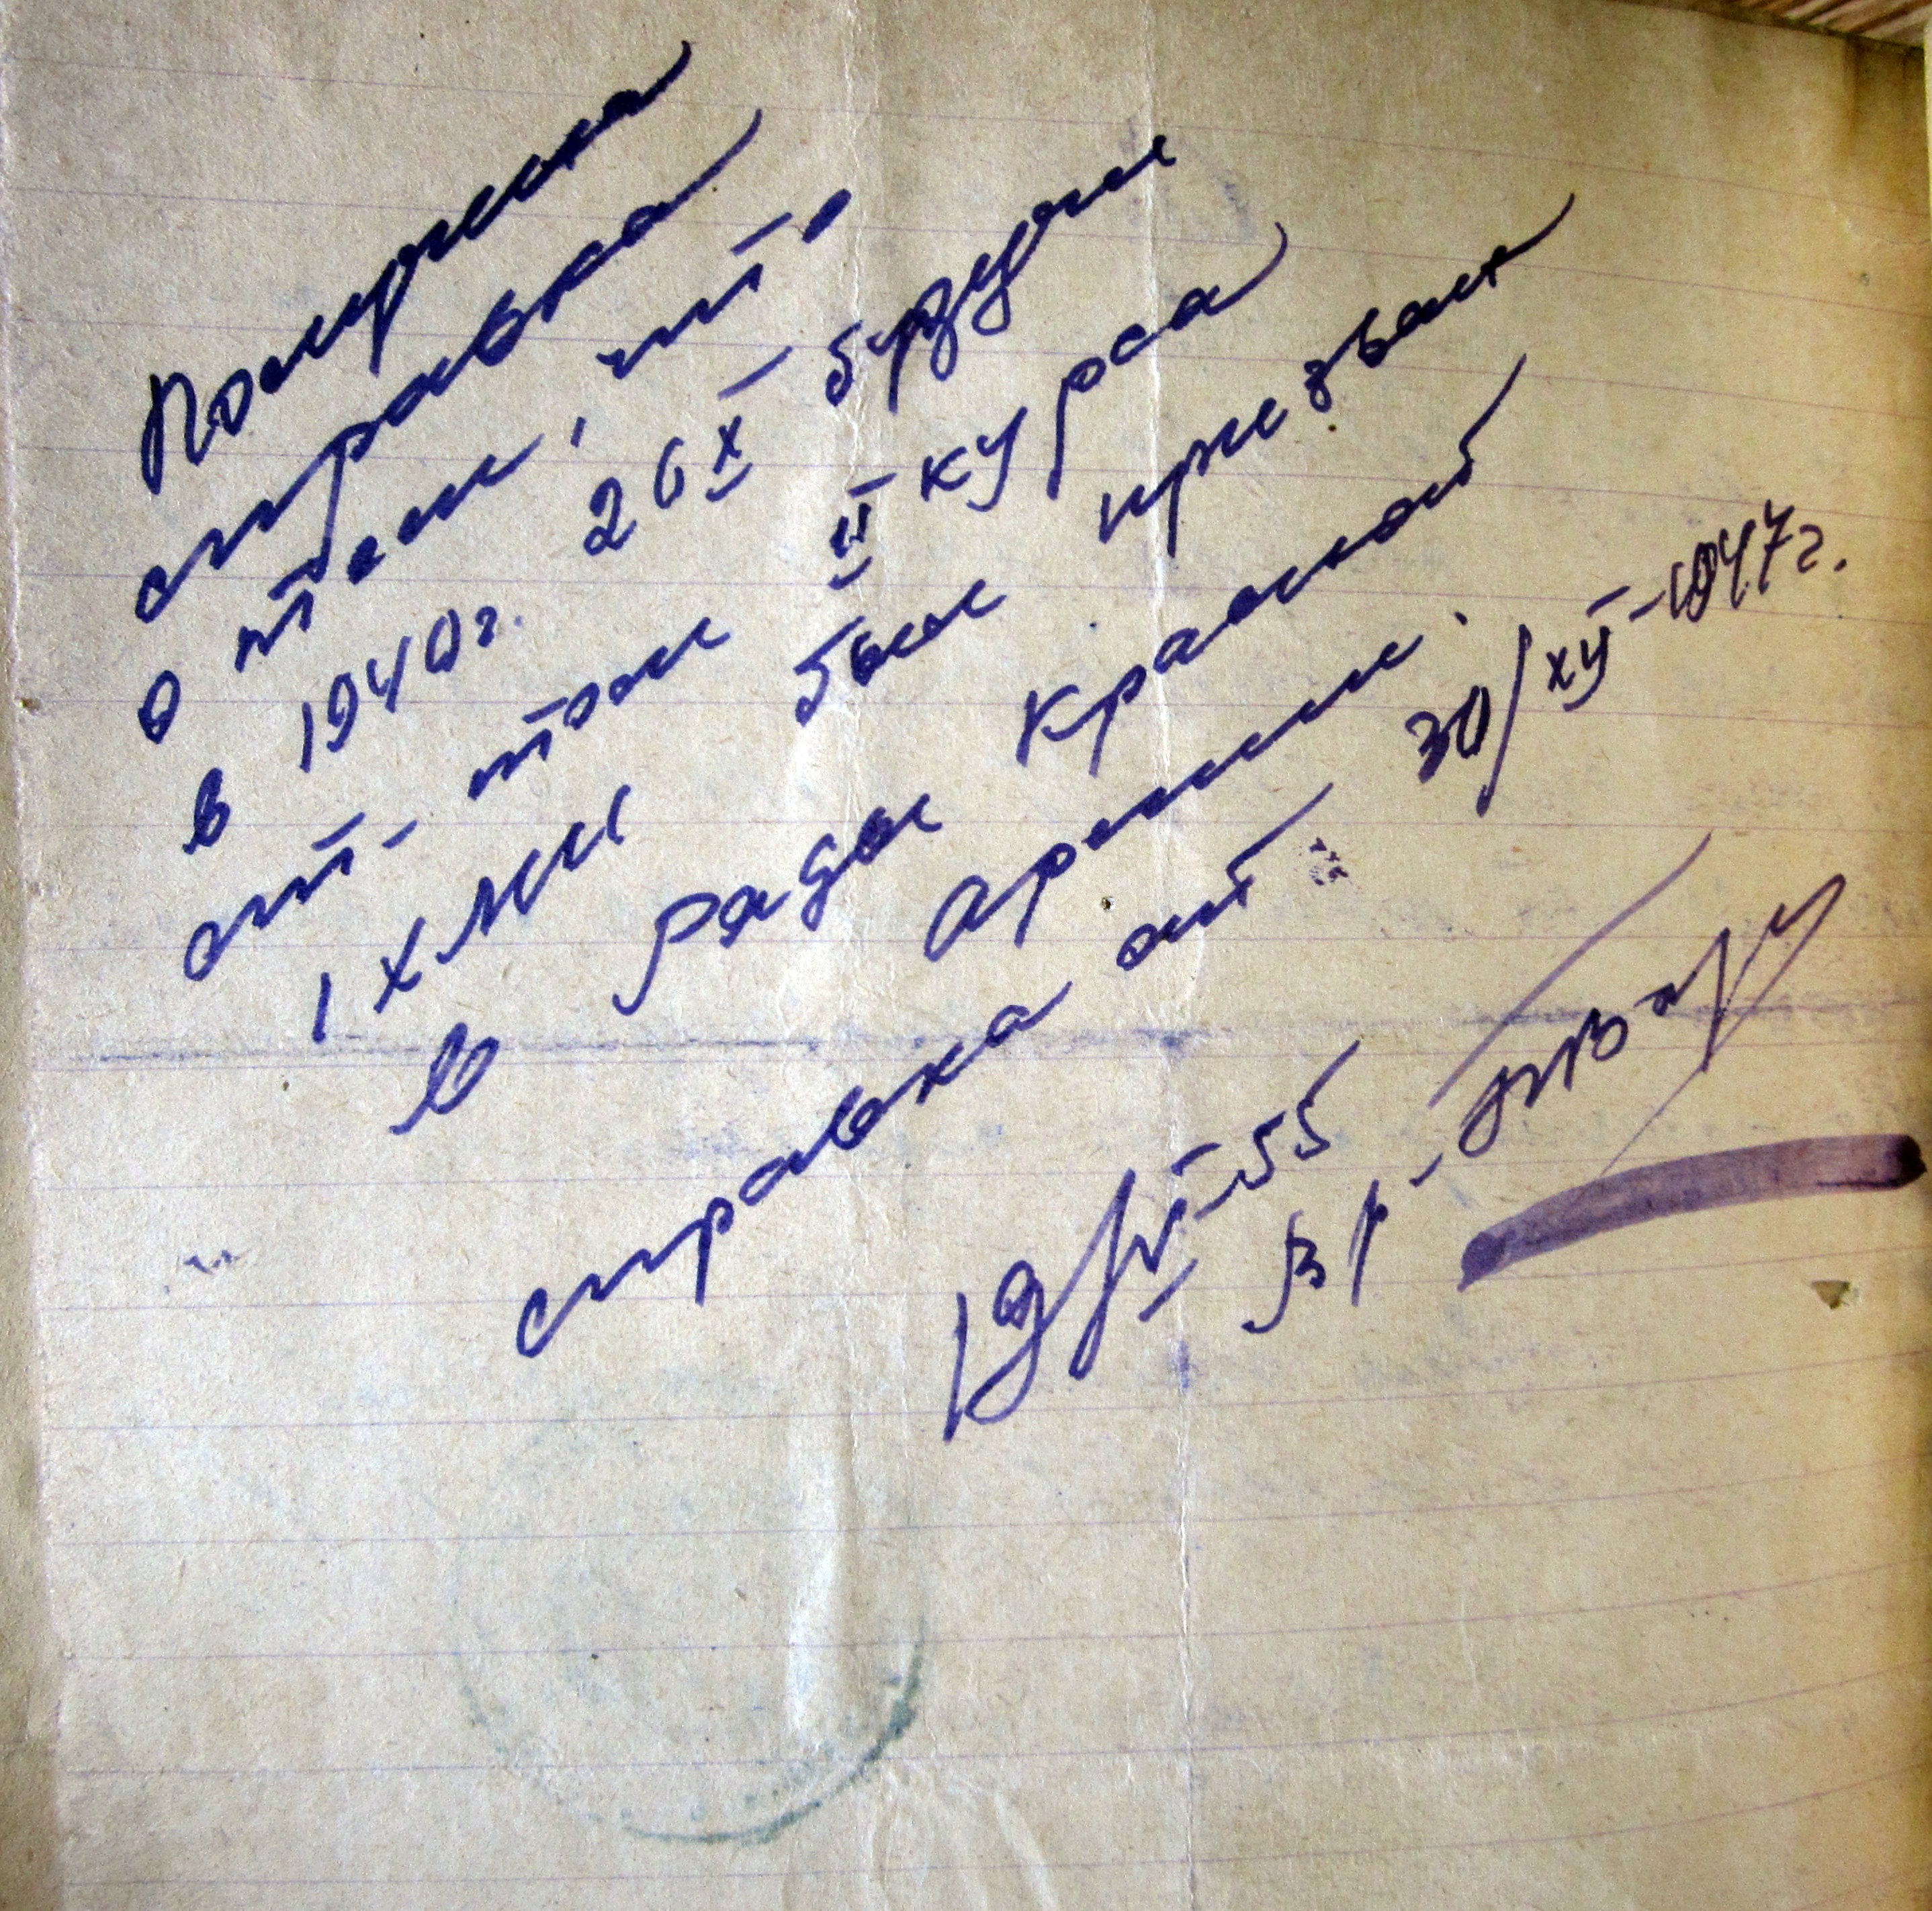 Получена
справка
о том, что
в 1940г. 26 X будучи
ст-том II курса
1 ХМИ был призван
в ряды Красной
Армии.
справка от 30/XII-1947г.
19/VI-55